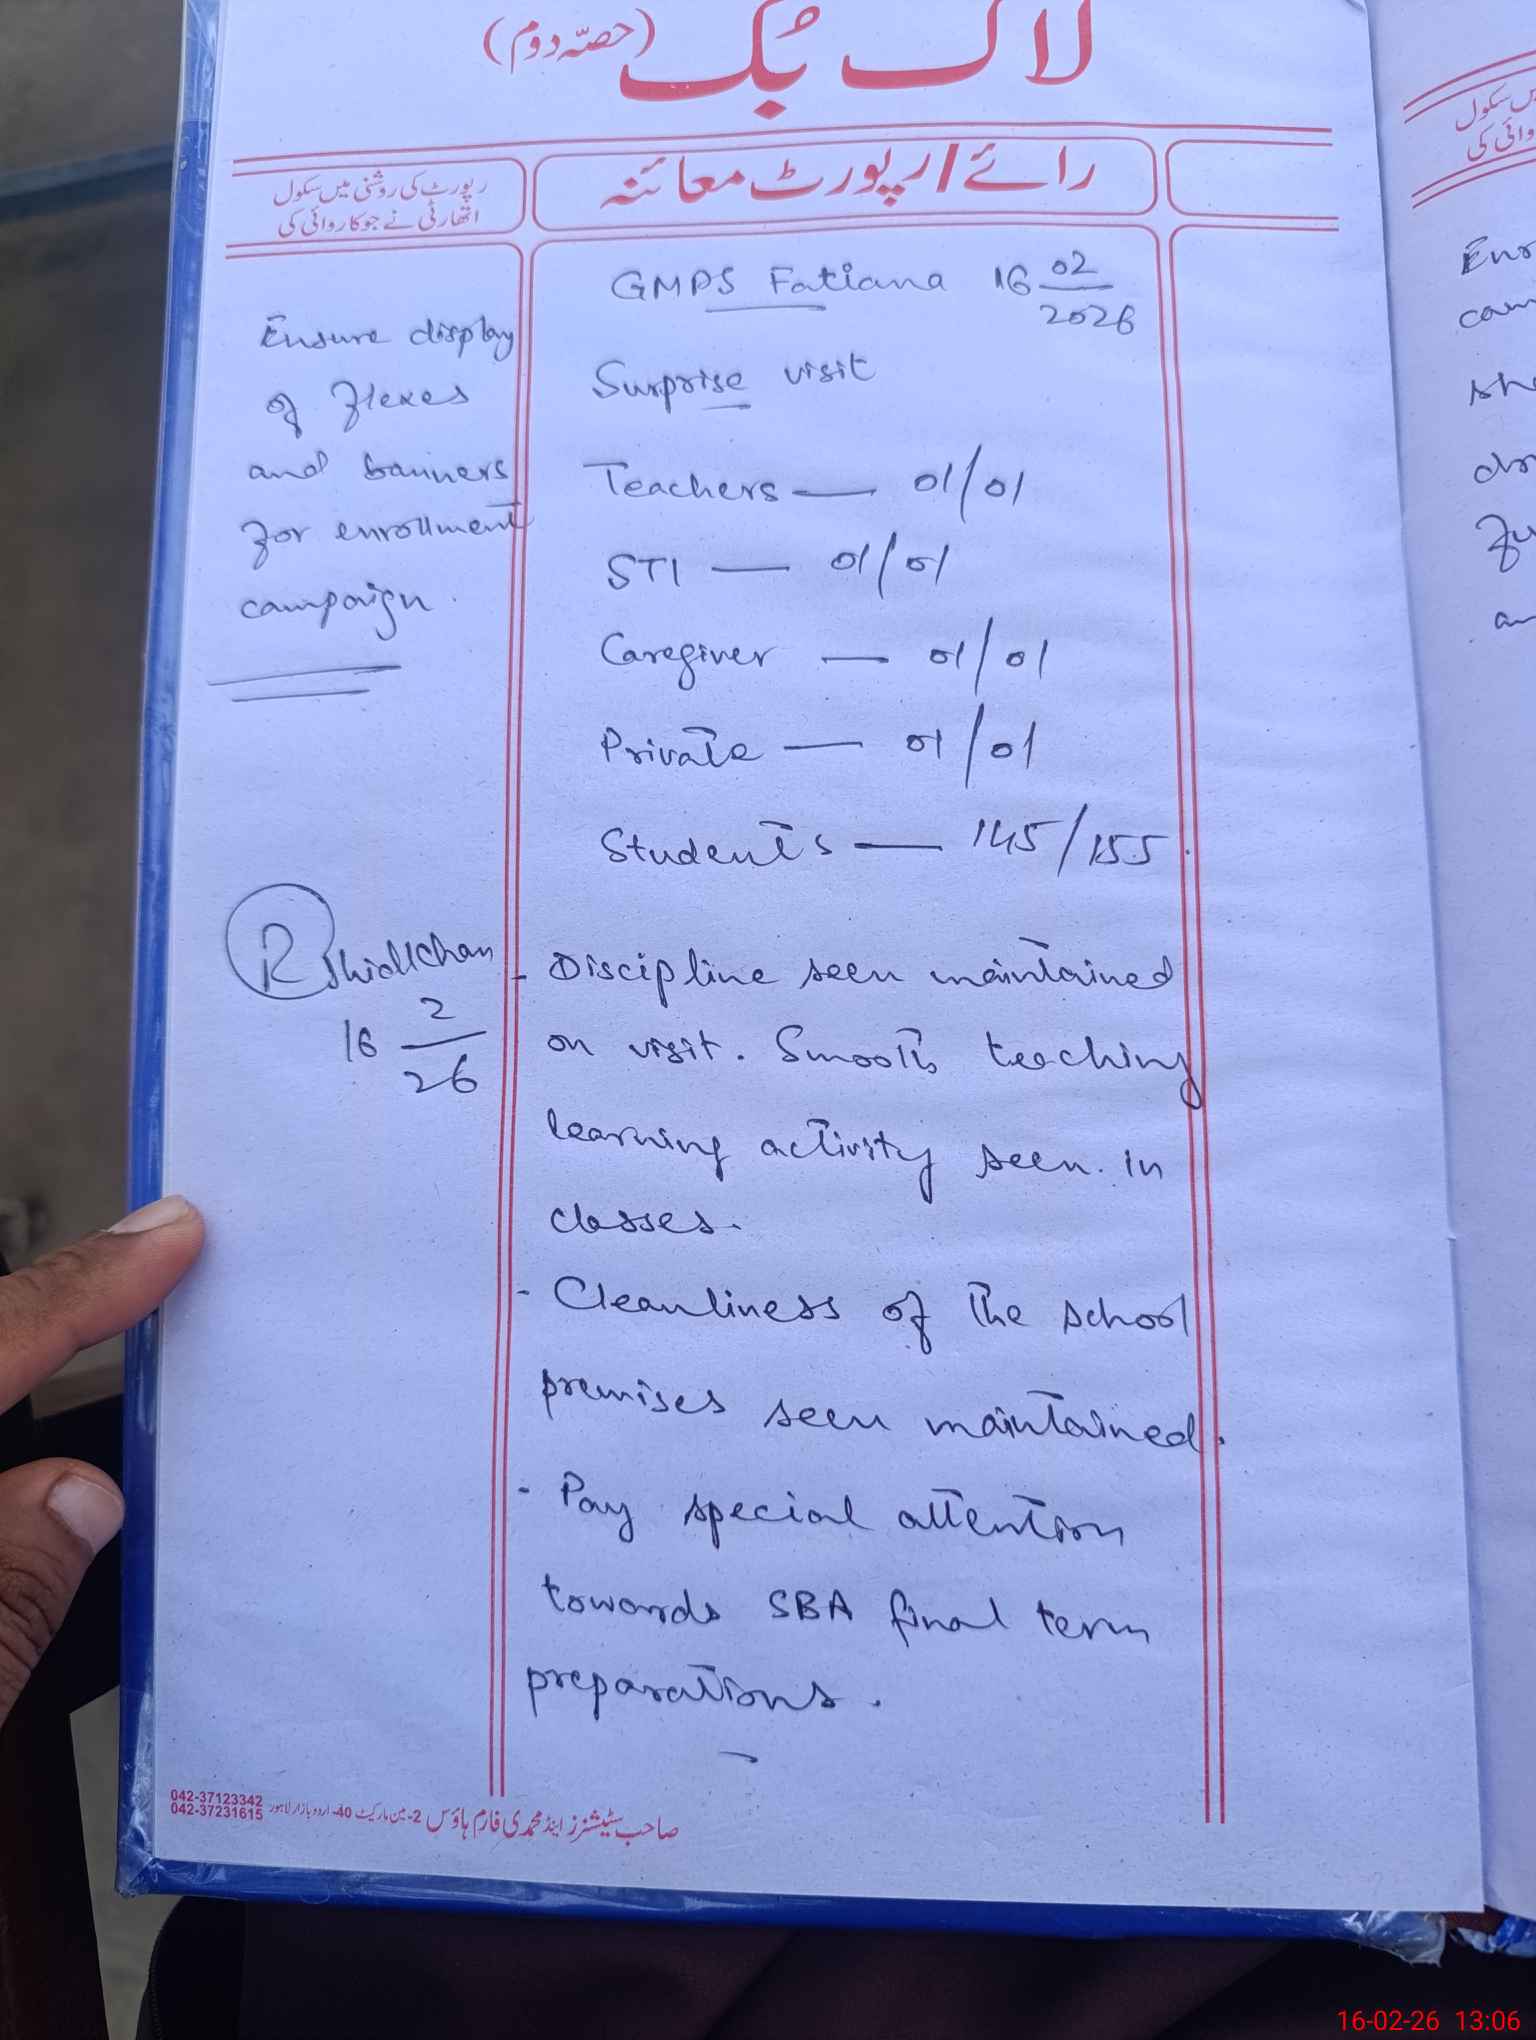 لاگ بک (حصہ دوم)
رائے/رپورٹ معائنہ
رپورٹ کی روشنی میں سکول
اتھارٹی نے جو کاروائی کی
GMPS Fatiana 16 02/2026
Surprise visit
Teachers — 01/01
STI — 01/01
Caregiver — 01/01
Private — 01/01
Students — 145/155
- Discipline seen maintained
on visit. Smooth teaching
learning activity seen in
classes.
- Cleanliness of the school
premises seen maintained.
- Pay special attention
towards SBA final term
preparations.
Ensure display
of flexes
and banners
for enrollment
campaign.
16 2/26
میں سکول
وائی کی
صاحب سٹیشنرز اینڈ محمدی فارم ہاؤس 2-مین مارکیٹ 40-اردو بازار لاہور
042-37123342
042-37231615
16-02-26 13:06